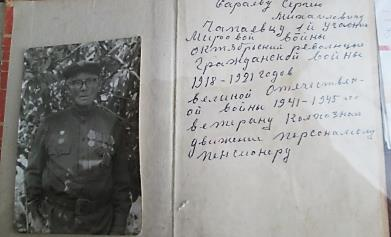 Сараеву Сергею
Михайловичу
Чапаевцу 1й участн
Мировой войны
октябрьския революции
Гражданской войны
1918-1921 годов
великой Отечествен-
ой войны 1941-1945 го
ветерану Колхозная
движения персональну
пенсионеру